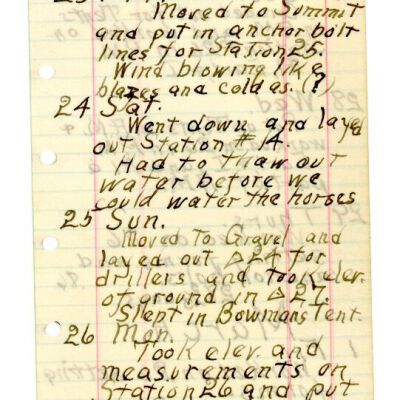 Moved to Summit
and put in anchor bolt
lines for Station 25.
Wind blowing like
blazes and cold as. (?)
24 Sat.
Went down and layed
out Station # 14.
Had to thaw out
water before we
could water the horses
25 Sun.
Moved to Gravel and
layed out △24 for
drillers and took elev.
of ground in △27.
Slept in Bowmans Tent.
26 Mon.
Took elev. and
measurements on
Station 26 and put